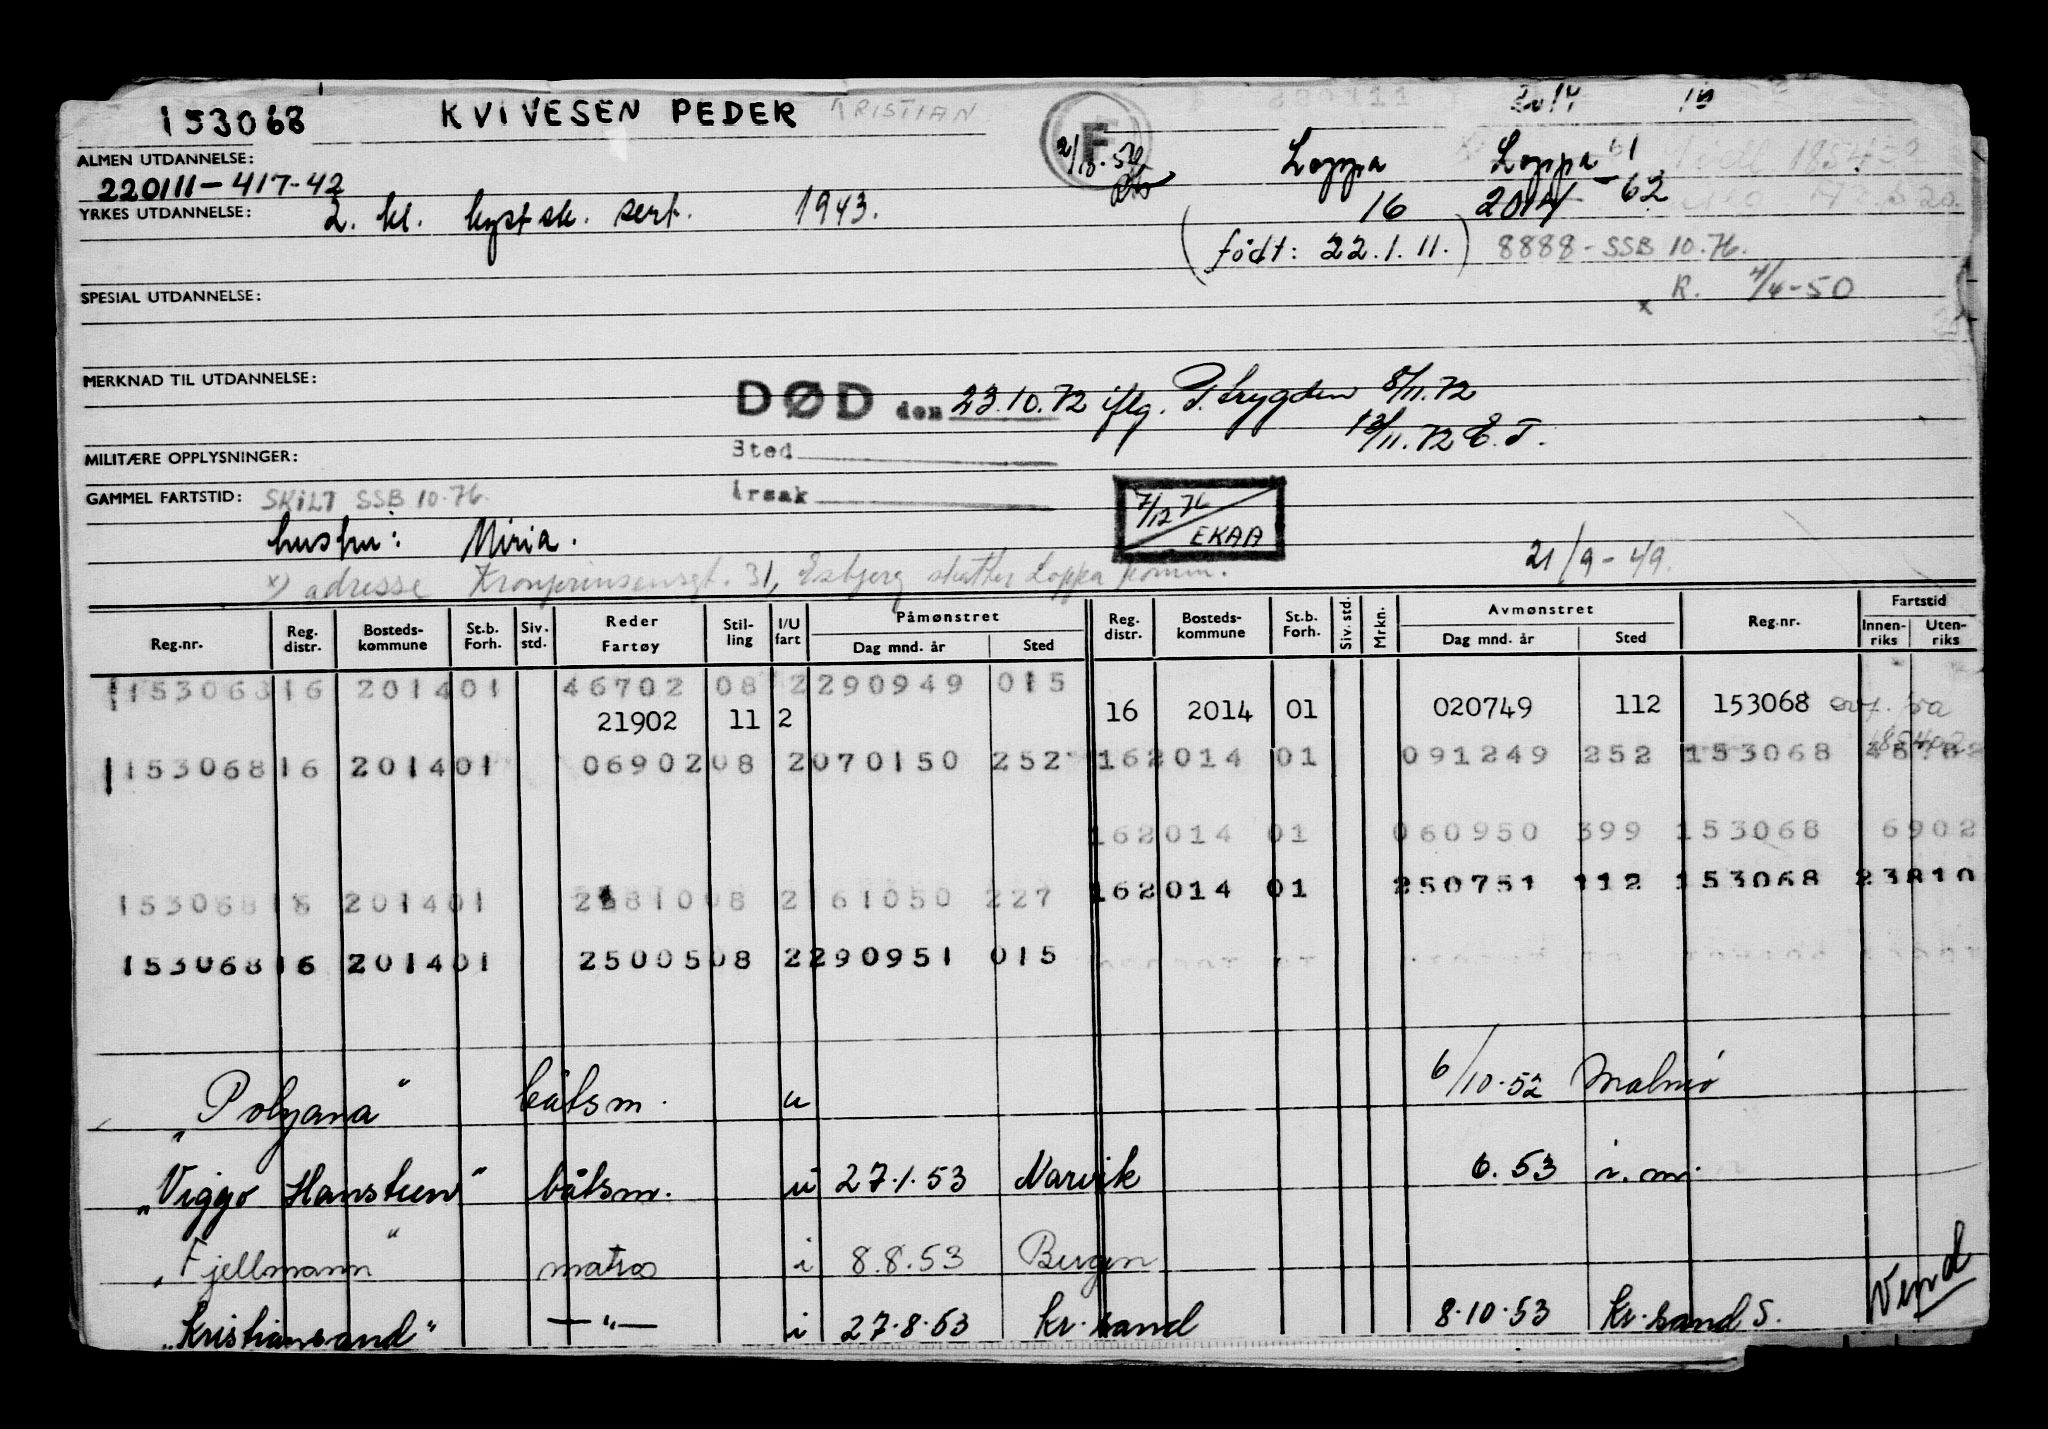 153068 KVIVESEN PEDER KRISTIAN 2014
ALMEN UTDANNELSE: 2/10.52 F Loppa Loppa 61
220111-417-42 16 2014 - 62
YRKES UTDANNELSE: 2. kl. kystsk. sert. 1943.
(født: 22.1.11.) 8888-SSB 10.76.
SPESIAL UTDANNELSE: x R. 4/4-50
MERKNAD TIL UTDANNELSE:
DØD den 23.10.72 iflg. P.trygden 8/11.72
13/11.72 E.T.
MILITÆRE OPPLYSNINGER: Sted
GAMMEL FARTSTID: SKILT SSB 10.76. Årsak 7/12 76 EKAA
hustru: Miria. 21/9-49.
x) adresse Kronprinsensgt. 31, Esbjerg skatter Loppa komm.
Reg.nr. Reg. distr. Bosteds-kommune St.b. Forh. Siv. std. Reder Fartøy Stil-ling I/U fart Påmønstret Dag mnd. år Sted Reg. distr. Bosteds-kommune St.b. Forh. Siv. std. Mrkn. Avmønstret Dag mnd. år Sted Reg.nr. Fartstid Innen-riks Uten-riks
153068 16 2014 01 46702 08 2 290949 015
21902 11 2 16 2014 01 020749 112 153068 ovf. fra
153068 16 2014 01 06902 08 2 070150 252 16 2014 01 091249 252 153068
16 2014 01 060950 399 153068 6902
16 2014 01 250751 112 153068 23810
153068 16 2014 01 08 2 161050 227
153068 16 2014 01 25005 08 2 290951 015
"Polyana" båtsm. u 6/10-52 Malmø
"Viggo Hansteen" båtsm. u 27.1.53 Narvik 6.53 i.m.
"Fjellmann" matros i 8.8.53 Bergen
"Kristiansand" —"— i 27.8.53 Kr.sand 8.10.53 Kr.sand S.
Vend